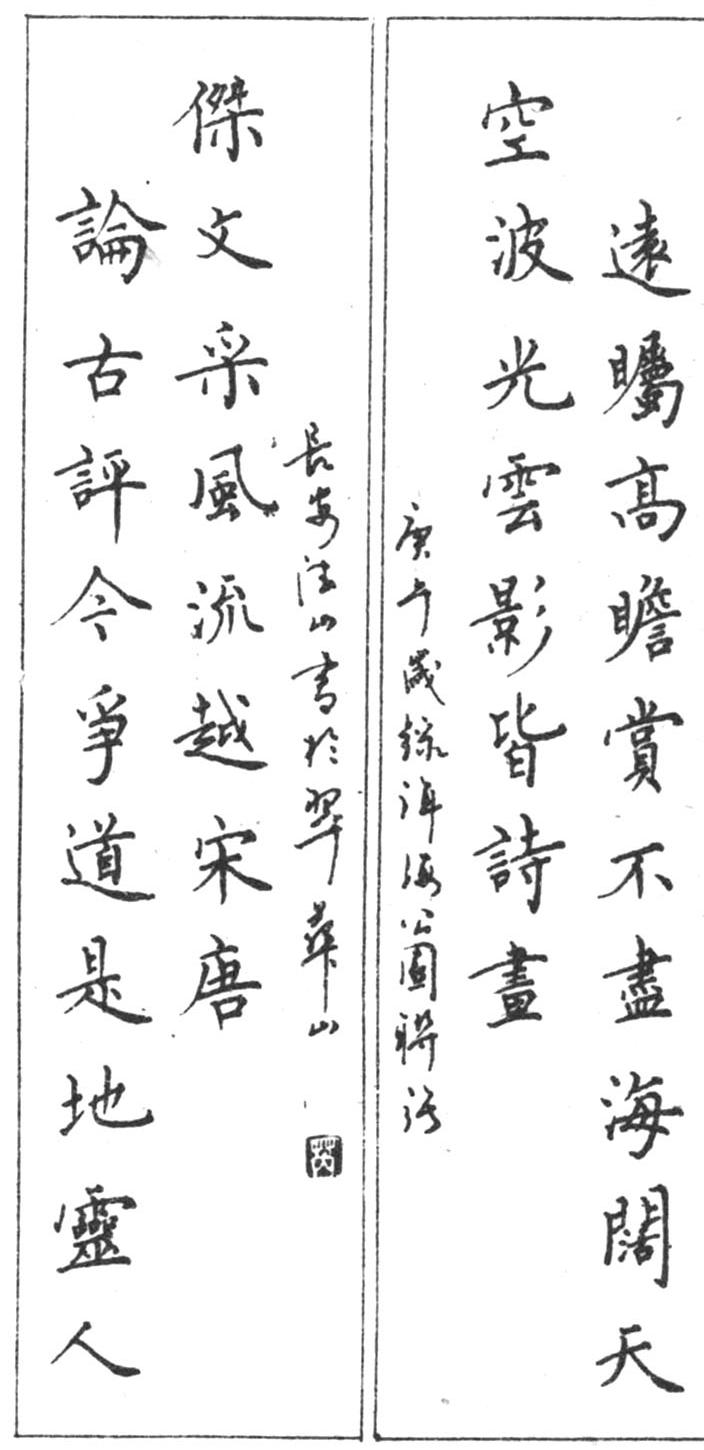 遠矚高瞻賞不盡海闊天
空波光雲影皆詩畫
庚午歲錄洱海公園聯語
論古評今爭道是地靈人
傑文采風流越宋唐
長安山書於翠華山